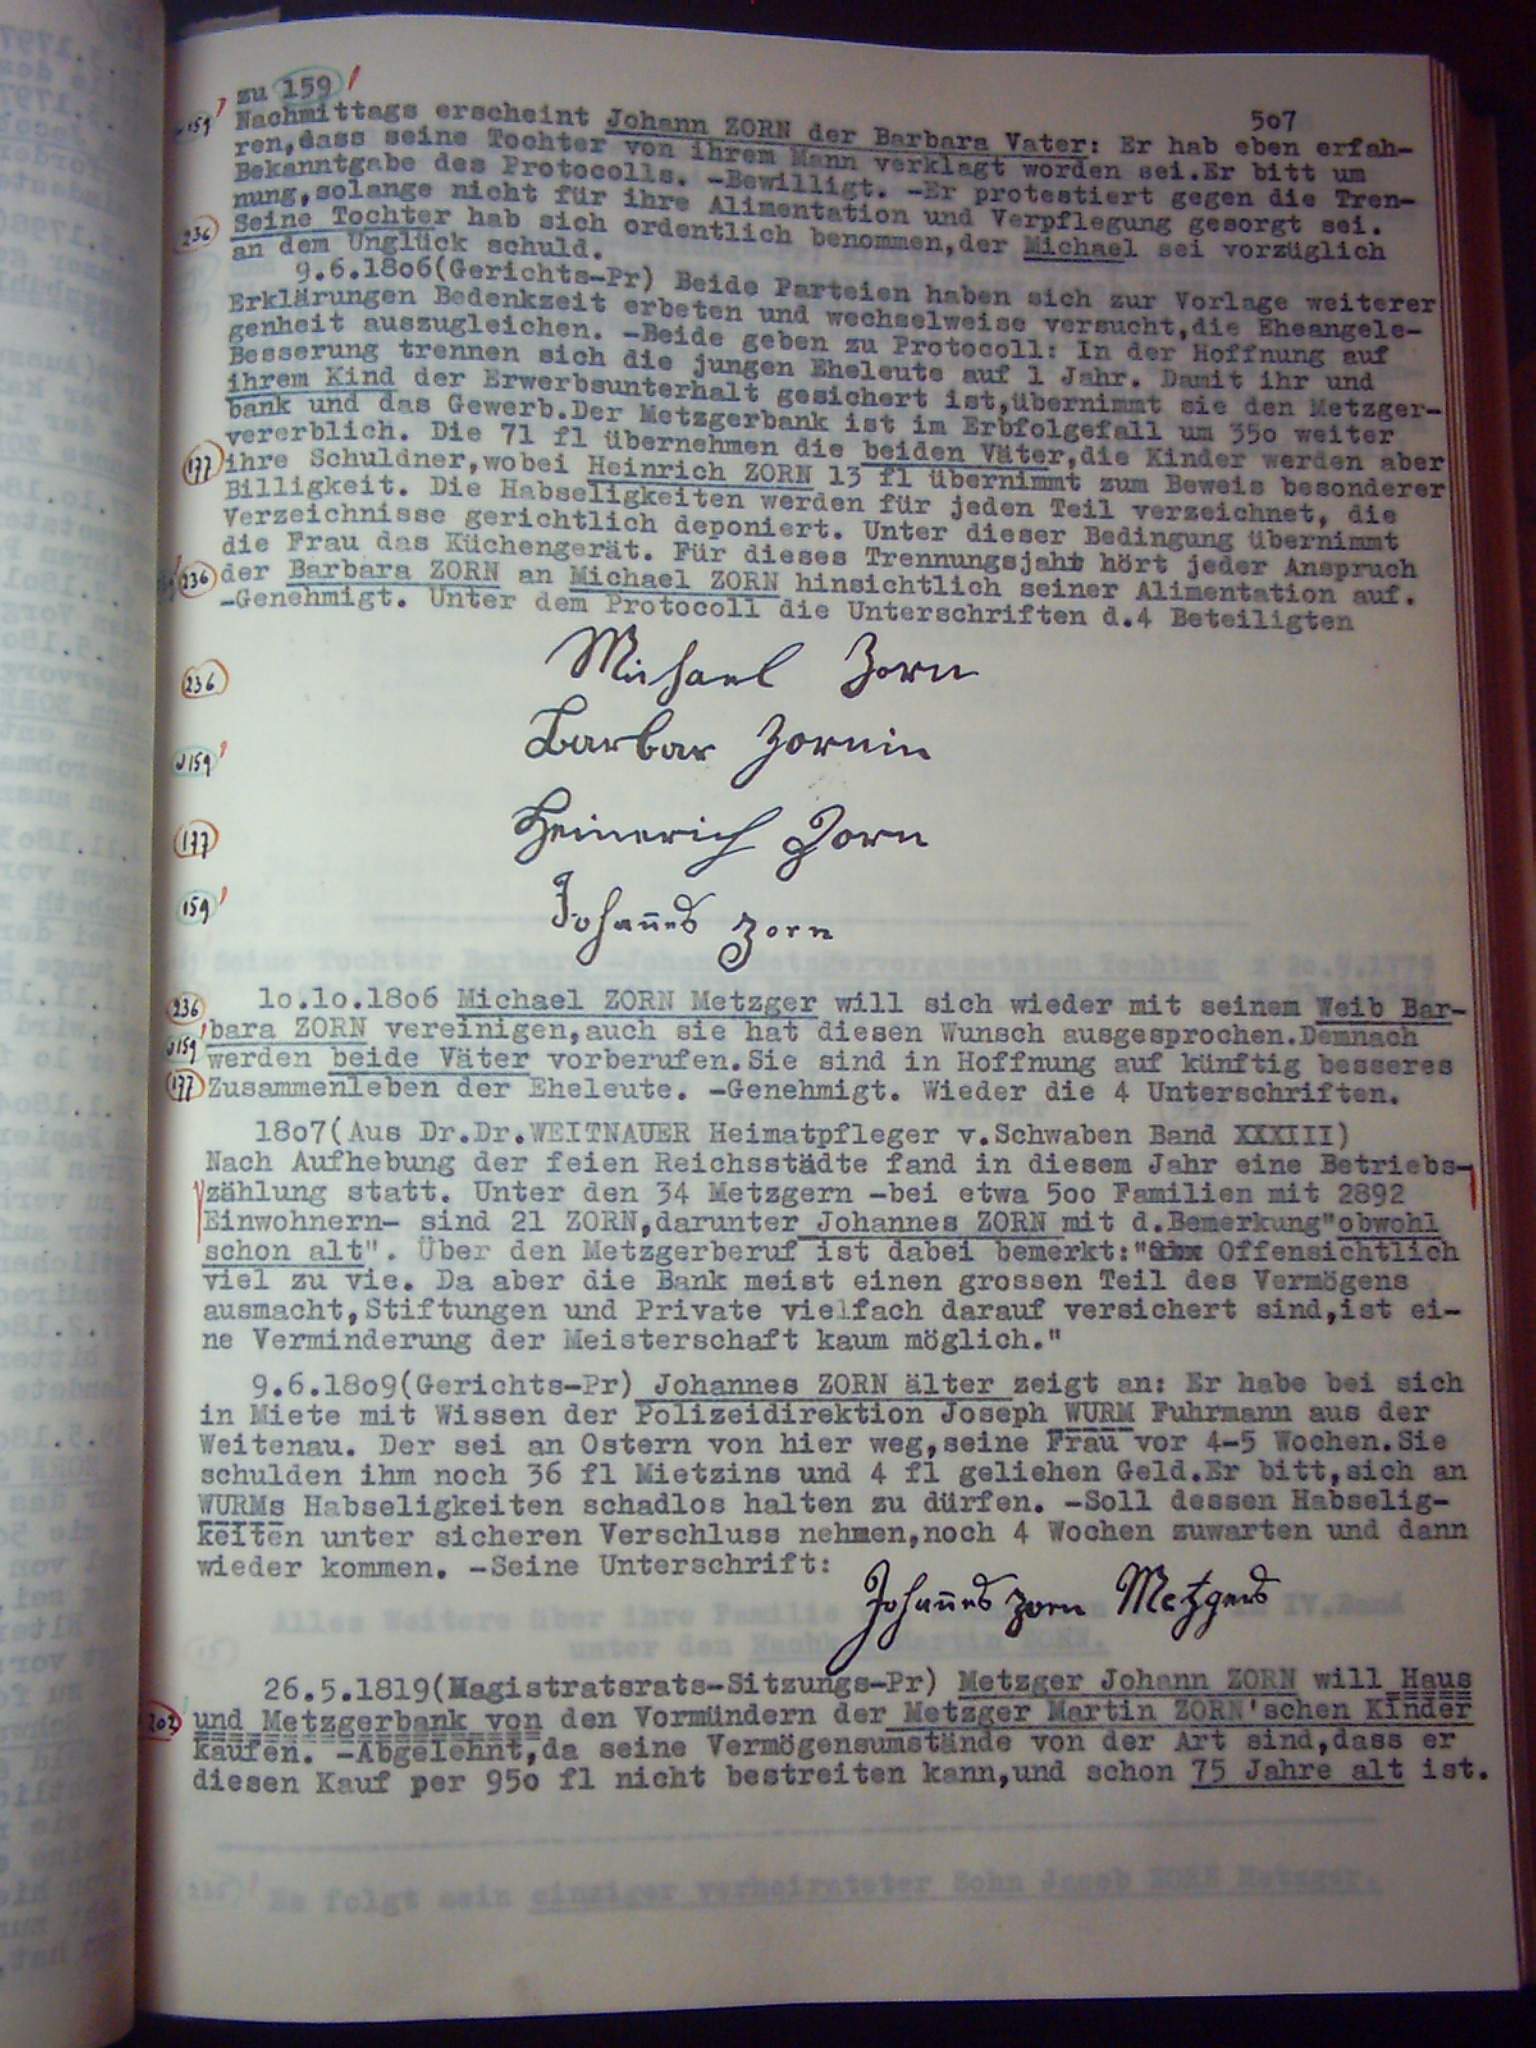 zu 159
507
Nachmittags erscheint Johann ZORN der Barbara Vater: Er hab eben erfah-
ren,dass seine Tochter von ihrem Mann verklagt worden sei.Er bitt um
Bekanntgabe des Protocolls. -Bewilligt. -Er protestiert gegen die Tren-
nung,solange nicht für ihre Alimentation und Verpflegung gesorgt sei.
236 Seine Tochter hab sich ordentlich benommen,der Michael sei vorzüglich
an dem Unglück schuld.
9.6.18o6(Gerichts-Pr) Beide Parteien haben sich zur Vorlage weiterer
Erklärungen Bedenkzeit erbeten und wechselweise versucht,die Eheangele-
genheit auszugleichen. -Beide geben zu Protocoll: In der Hoffnung auf
Besserung trennen sich die jungen Eheleute auf 1 Jahr. Damit ihr und
ihrem Kind der Erwerbsunterhalt gesichert ist,übernimmt sie den Metzger-
bank und das Gewerb.Der Metzgerbank ist im Erbfolgefall um 35o weiter
vererblich. Die 71 fl übernehmen die beiden Väter,die Kinder werden aber
177 ihre Schuldner,wobei Heinrich ZORN 13 fl übernimmt zum Beweis besonderer
Billigkeit. Die Habseligkeiten werden für jeden Teil verzeichnet, die
Verzeichnisse gerichtlich deponiert. Unter dieser Bedingung übernimmt
die Frau das Küchengerät. Für dieses Trennungsjahr hört jeder Anspruch
236 der Barbara ZORN an Michael ZORN hinsichtlich seiner Alimentation auf.
-Genehmigt. Unter dem Protocoll die Unterschriften d.4 Beteiligten
236 Michael Zorn
v159 Barbar Zornin
177 Heinerich Zorn
159 Johannes Zorn
236 1o.1o.18o6 Michael ZORN Metzger will sich wieder mit seinem Weib Bar-
bara ZORN vereinigen,auch sie hat diesen Wunsch ausgesprochen.Demnach
v159 werden beide Väter vorberufen.Sie sind in Hoffnung auf künftig besseres
177 Zusammenleben der Eheleute. -Genehmigt. Wieder die 4 Unterschriften.
18o7(Aus Dr.Dr.WEITNAUER Heimatpfleger v.Schwaben Band XXXIII)
Nach Aufhebung der feien Reichsstädte fand in diesem Jahr eine Betriebs-
zählung statt. Unter den 34 Metzgern -bei etwa 5oo Familien mit 2892
Einwohnern- sind 21 ZORN,darunter Johannes ZORN mit d.Bemerkung"obwohl
schon alt". Über den Metzgerberuf ist dabei bemerkt:" Offensichtlich
viel zu vie. Da aber die Bank meist einen grossen Teil des Vermögens
ausmacht,Stiftungen und Private vielfach darauf versichert sind,ist ei-
ne Verminderung der Meisterschaft kaum möglich."
9.6.18o9(Gerichts-Pr) Johannes ZORN älter zeigt an: Er habe bei sich
in Miete mit Wissen der Polizeidirektion Joseph WURM Fuhrmann aus der
Weitenau. Der sei an Ostern von hier weg,seine Frau vor 4-5 Wochen.Sie
schulden ihm noch 36 fl Mietzins und 4 fl geliehen Geld.Er bitt,sich an
WURMs Habseligkeiten schadlos halten zu dürfen. -Soll dessen Habselig-
keiten unter sicheren Verschluss nehmen,noch 4 Wochen zuwarten und dann
wieder kommen. -Seine Unterschrift:
Johannes Zorn Metzger
26.5.1819(Magistratsrats-Sitzungs-Pr) Metzger Johann ZORN will Haus
202 und Metzgerbank von den Vormündern der Metzger Martin ZORN'schen Kinder
kaufen. -Abgelehnt,da seine Vermögensumstände von der Art sind,dass er
diesen Kauf per 95o fl nicht bestreiten kann,und schon 75 Jahre alt ist.